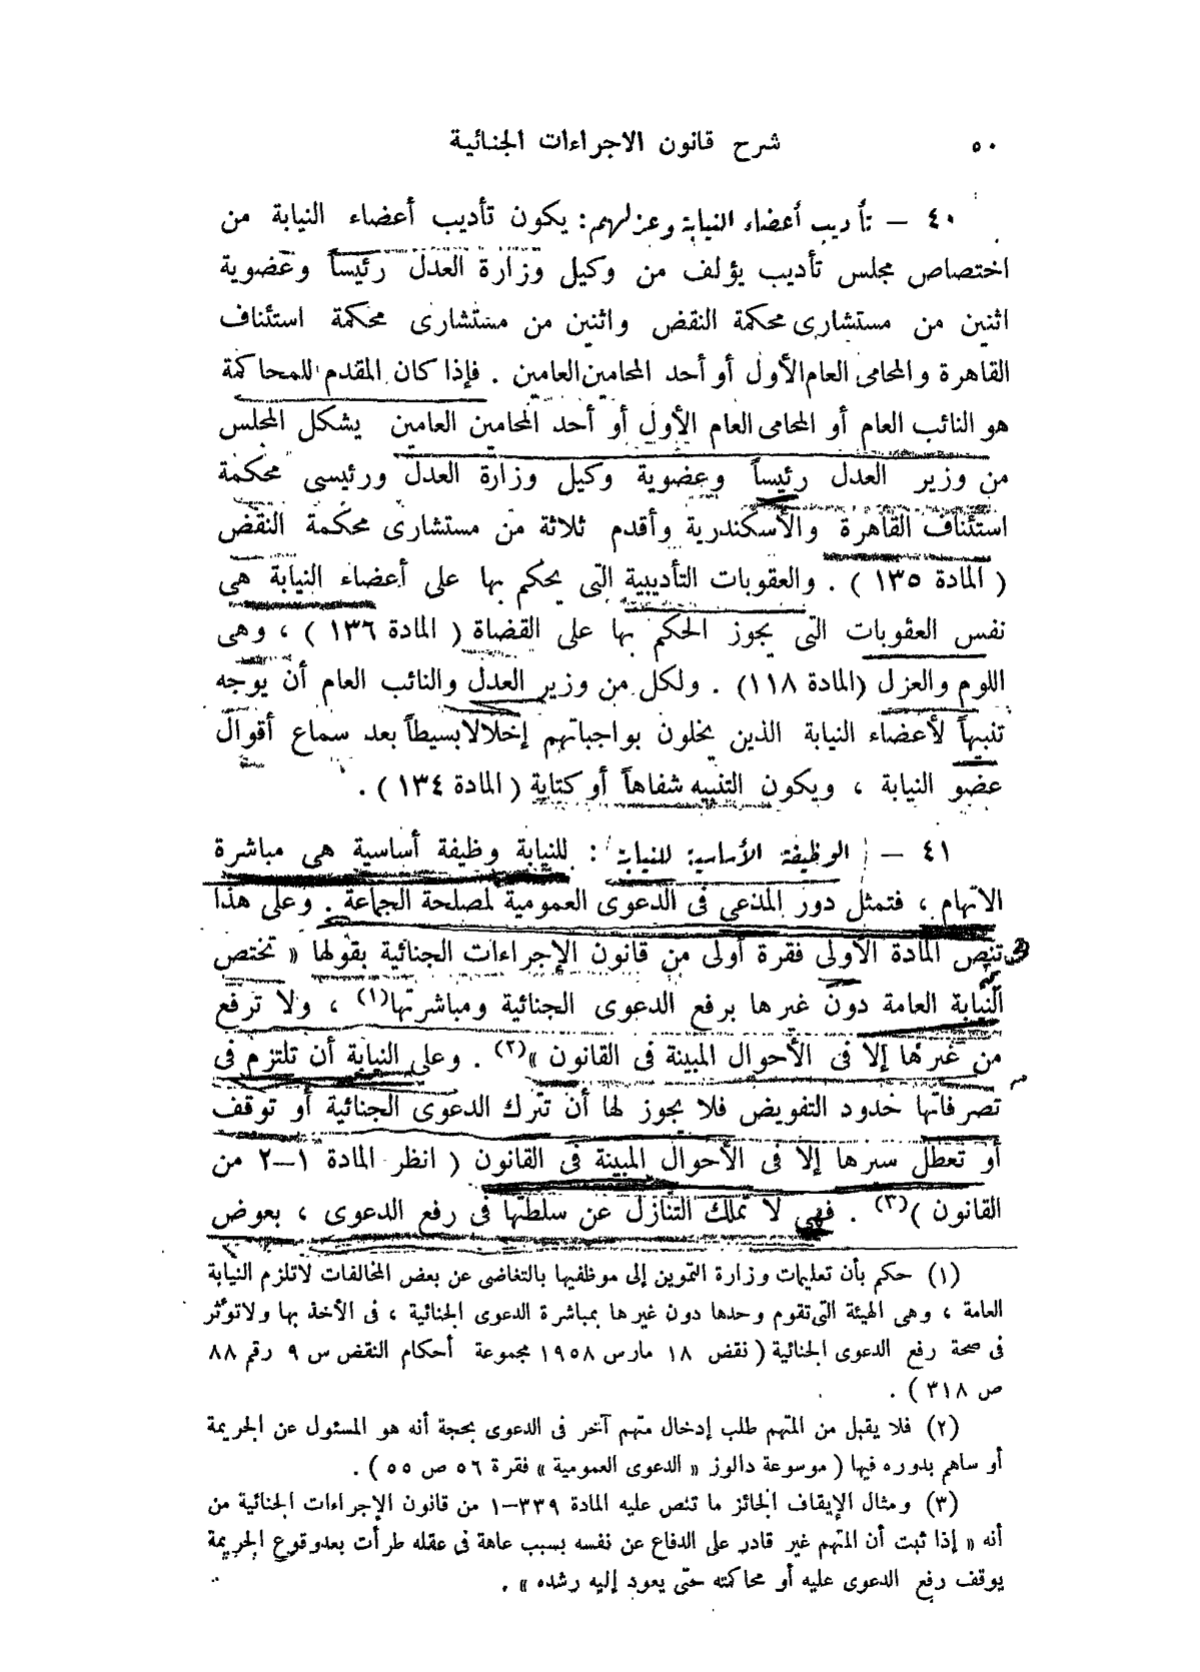 ٥٠ شرح قانون الاجراءات الجنائية
٤٠ — تأديب أعضاء النيابة وعزلهم: يكون تأديب أعضاء النيابة من
اختصاص مجلس تأديب يؤلف من وكيل وزارة العدل رئيساً وعضوية
اثنين من مستشارى محكمة النقض واثنين من مستشارى محكمة استئناف
القاهرة والمحامى العام الأول أو أحد المحامين العامين . فإذا كان المقدم للمحاكمة
هو النائب العام أو المحامى العام الأول أو أحد المحامين العامين يشكل المجلس
من وزير العدل رئيساً وعضوية وكيل وزارة العدل ورئيسى محكمة
استئناف القاهرة والأسكندرية وأقدم ثلاثة من مستشارى محكمة النقض
( المادة ١٣٥ ) . والعقوبات التأديبية التى يحكم بها على أعضاء النيابة هى
نفس العقوبات التى يجوز الحكم بها على القضاة ( المادة ١٣٦ ) ، وهى
اللوم والعزل (المادة ١١٨) . ولكل من وزير العدل والنائب العام أن يوجه
تنبيهاً لأعضاء النيابة الذين يخلون بواجباتهم إخلالا بسيطاً بعد سماع أقوال
عضو النيابة ، ويكون التنبيه شفاهاً أو كتابة ( المادة ١٣٤ ) .
٤١ — الوظيفة الأساسية للنيابة : للنيابة وظيفة أساسية هى مباشرة
الاتهام ، فتمثل دور المدعى فى الدعوى العمومية لمصلحة الجماعة . وعلى هذا
تنص المادة الأولى فقرة أولى من قانون الإجراءات الجنائية بقولها « تختص
النيابة العامة دون غيرها برفع الدعوى الجنائية ومباشرتها(١) ، ولا ترفع
من غيرها إلا فى الأحوال المبينة فى القانون »(٢) . وعلى النيابة أن تلتزم فى
تصرفاتها حدود التفويض فلا يجوز لها أن تترك الدعوى الجنائية أو توقف
أو تعطل سيرها إلا فى الأحوال المبينة فى القانون ( انظر المادة ١—٢ من
القانون )(٣) . فهى لا تملك التنازل عن سلطتها فى رفع الدعوى ، بعوض
(١) حكم بأن تعليمات وزارة التموين إلى موظفيها بالتغاضى عن بعض المخالفات لاتلزم النيابة
العامة ، وهى الهيئة التى تقوم وحدها دون غيرها بمباشرة الدعوى الجنائية ، فى الأخذ بها ولاتؤثر
فى صحة رفع الدعوى الجنائية ( نقض ١٨ مارس ١٩٥٨ مجموعة أحكام النقض س ٩ رقم ٨٨
ص ٣١٨ ) .
(٢) فلا يقبل من المتهم طلب إدخال متهم آخر فى الدعوى بحجة أنه هو المسئول عن الجريمة
أو ساهم بدوره فيها ( موسوعة دالوز « الدعوى العمومية » فقرة ٥٦ ص ٥٥ ) .
(٣) ومثال الإيقاف الجائز ما تنص عليه المادة ٣٣٩—١ من قانون الإجراءات الجنائية من
أنه « إذا ثبت أن المتهم غير قادر على الدفاع عن نفسه بسبب عاهة فى عقله طرأت بعد وقوع الجريمة
يوقف رفع الدعوى عليه أو محاكمته حتى يعود إليه رشده » .